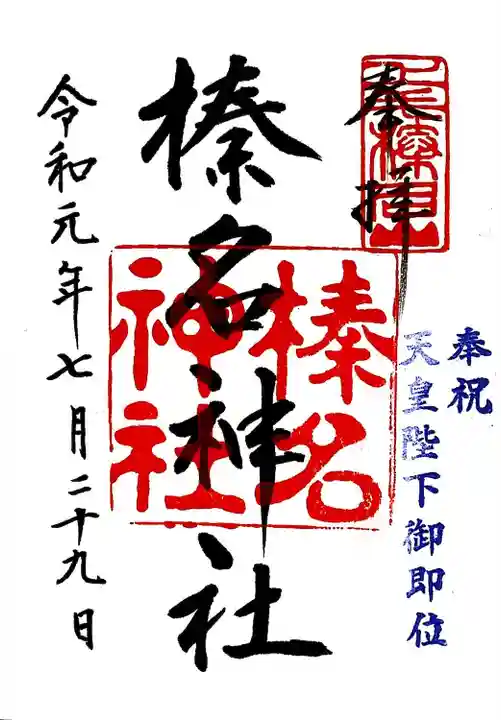 奉拝
奉祝
天皇陛下御即位
榛名神社
榛名
神社
令和元年七月二十九日